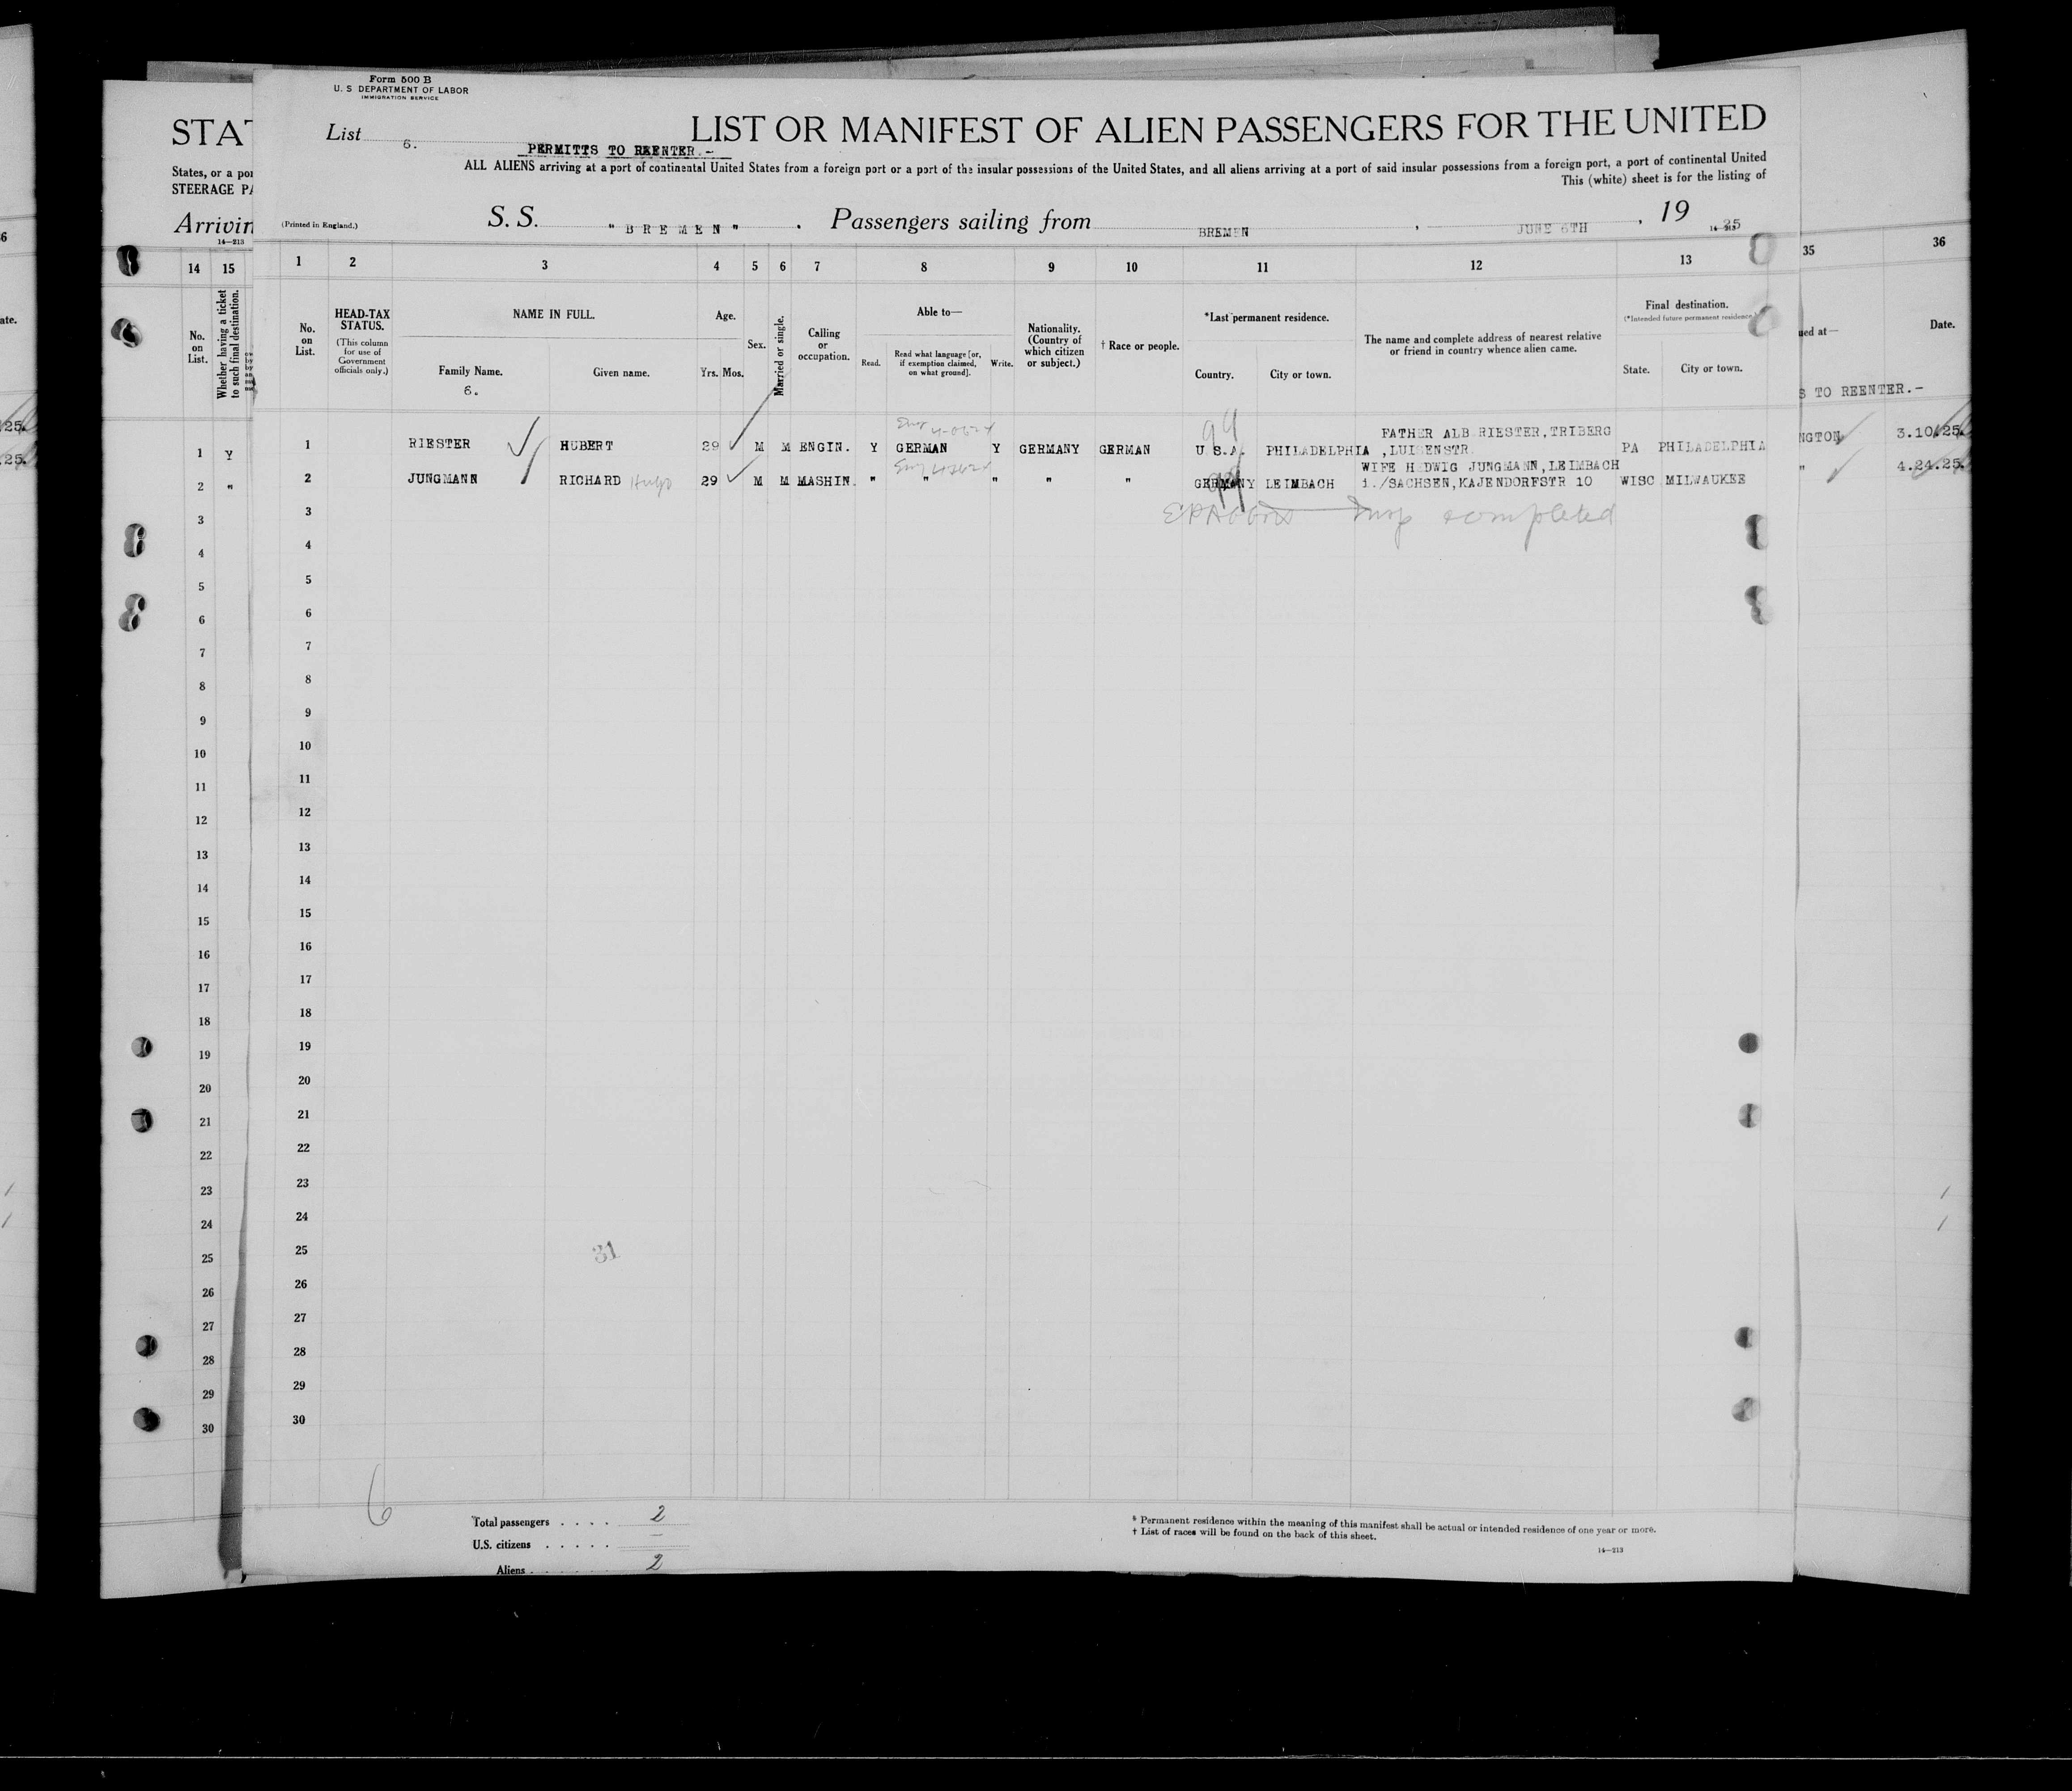 Form 500 B
U. S DEPARTMENT OF LABOR
IMMIGRATION SERVICE
List 6.
LIST OR MANIFEST OF ALIEN PASSENGERS FOR THE UNITED
PERMITTS TO REENTER.-
ALL ALIENS arriving at a port of continental United States from a foreign port or a port of the insular possessions of the United States, and all aliens arriving at a port of said insular possessions from a foreign port, a port of continental United
This (white) sheet is for the listing of
(Printed in England.)
S. S. "BREMEN". Passengers sailing from BREMEN, JUNE 6TH, 19 25
14—213
STAT
States, or a por
STEERAGE PA
Arrivin
14—213
14 15
No. on List.
Whether having a ticket to such final destination.
1 2 3 4 5 6 7 8 9 10 11 12 13
35 36
No. on List.
HEAD-TAX STATUS.
(This column for use of Government officials only.)
NAME IN FULL.
Family Name.
6.
Given name.
Age.
Yrs. Mos.
Sex.
Married or single.
Calling or occupation.
Able to—
Read.
Read what language [or, if exemption claimed, on what ground].
Write.
Nationality. (Country of which citizen or subject.)
† Race or people.
*Last permanent residence.
Country.
City or town.
The name and complete address of nearest relative or friend in country whence alien came.
Final destination.
(*Intended future permanent residence.)
State.
City or town.
ued at—
Date.
S TO REENTER.-
1 Y
1 RIESTER HUBERT 29 M M ENGIN. Y GERMAN Y GERMANY GERMAN U.S.A. PHILADELPHIA FATHER ALB.RIESTER,TRIBERG ,LUISENSTR. PA PHILADELPHIA
NGTON 3.10.25.
2 "
2 JUNGMANN RICHARD Hugo 29 M M MASHIN. " " " " " GERMANY LEIMBACH WIFE HEDWIG JUNGMANN,LEIMBACH i./SACHSEN,KAJENDORFSTR 10 WISC MILWAUKEE
" 4.24.25.
99
Insp completed
3
4
5
6
7
8
9
10
11
12
13
14
15
16
17
18
19
20
21
22
23
24
25
26
27
28
29
30
31
6
Total passengers . . . . 2
U.S. citizens . . . . . —
Aliens . . . . . 2
* Permanent residence within the meaning of this manifest shall be actual or intended residence of one year or more.
† List of races will be found on the back of this sheet.
14—213